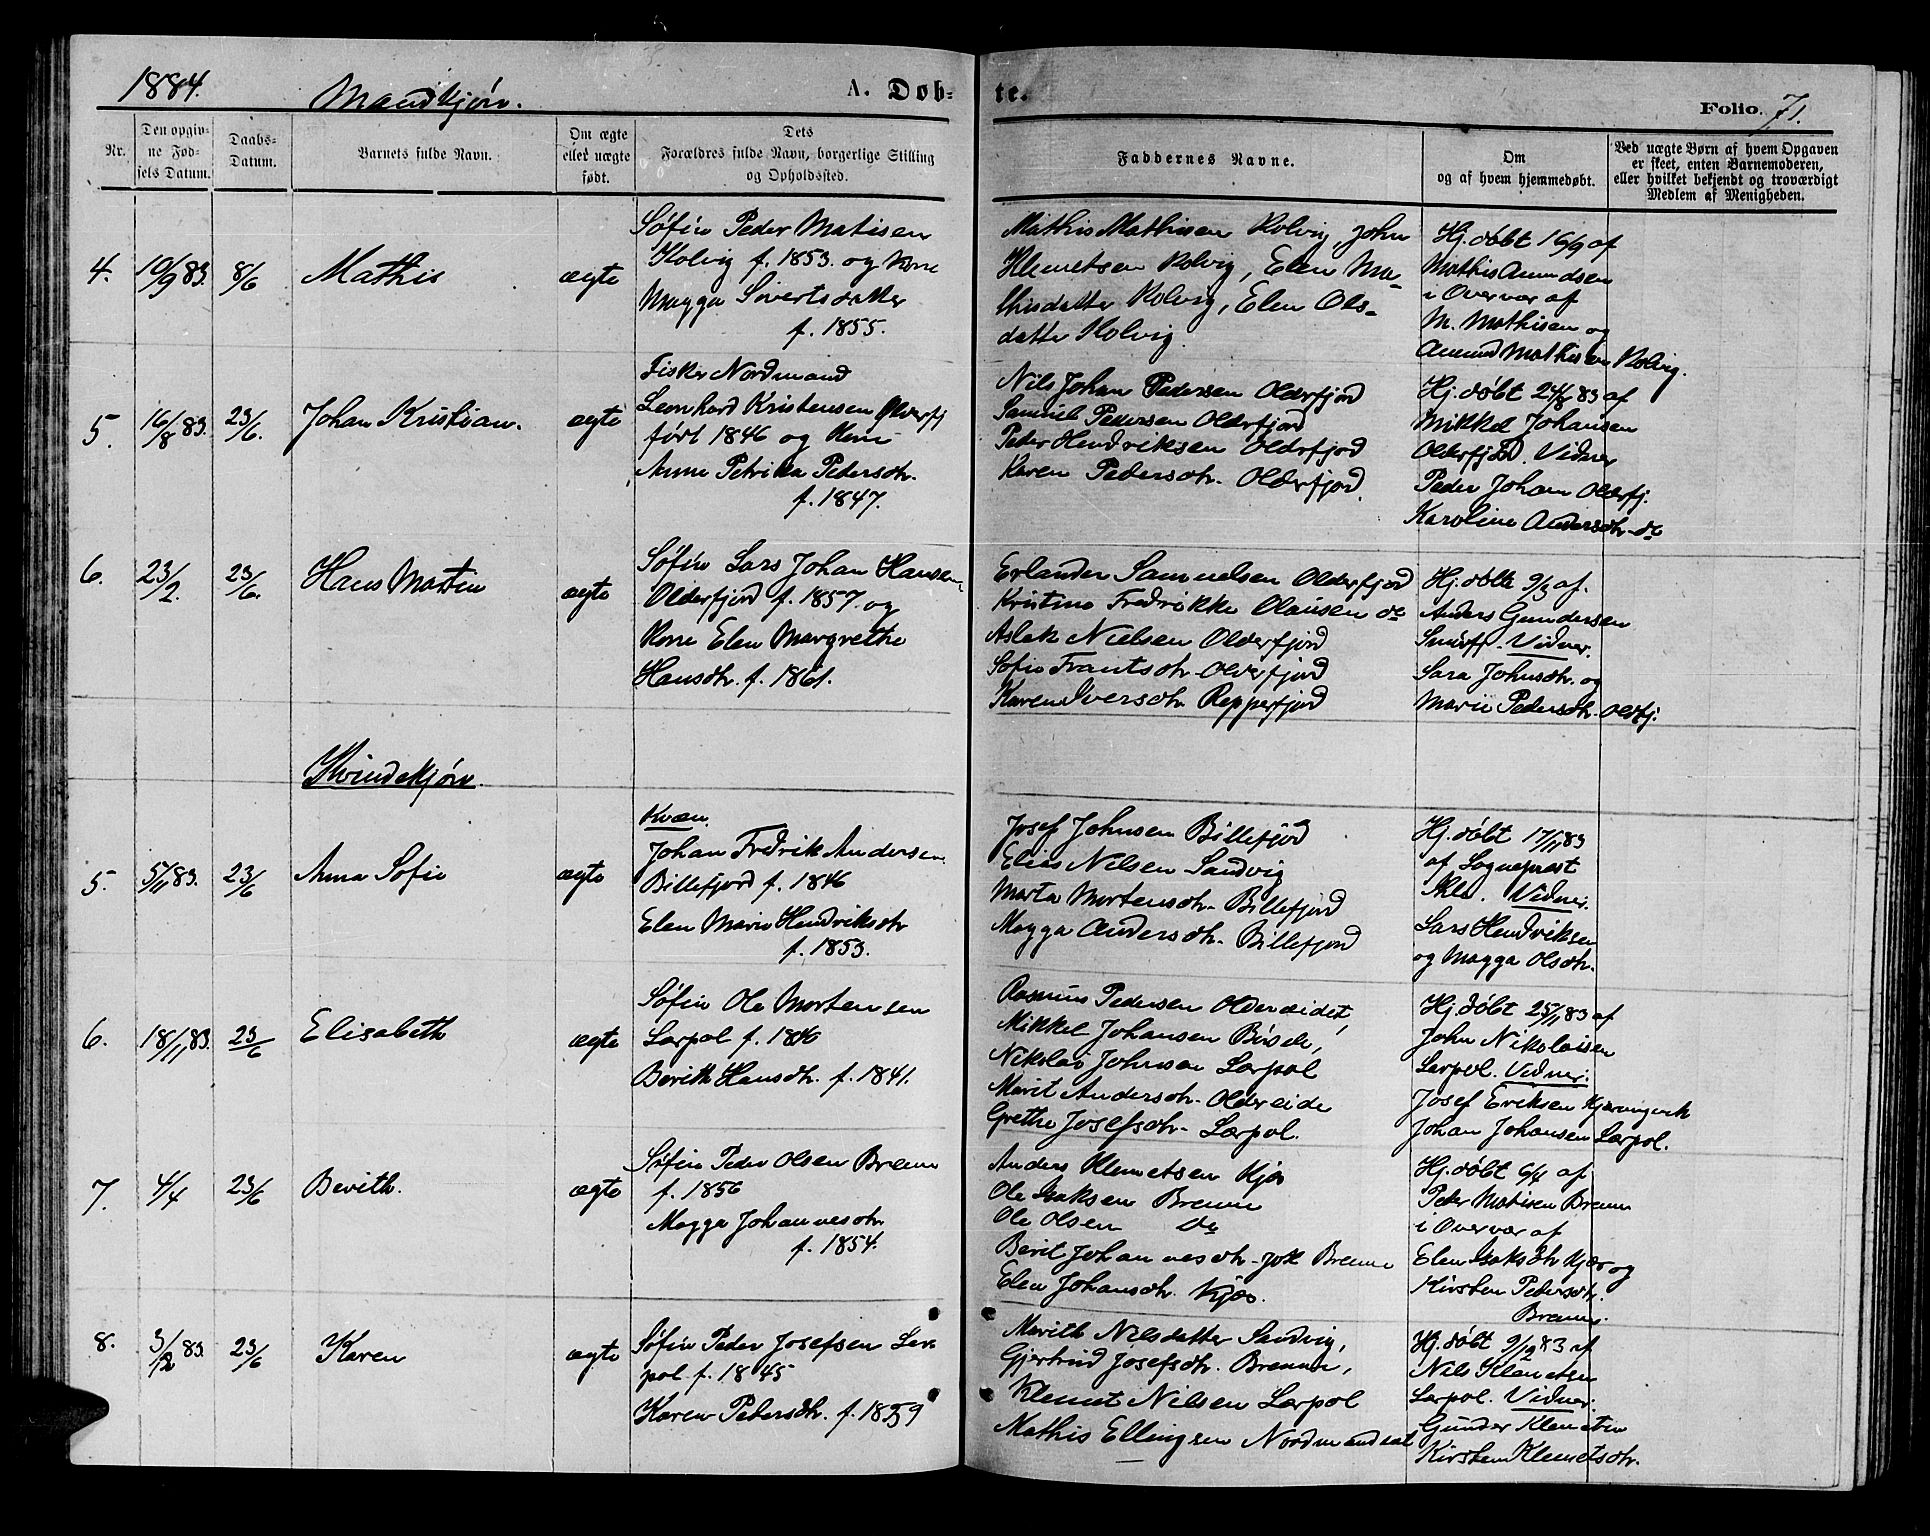 1884. Mandkjøn. A. Døb- te. Folio. 71.
Nr.
Den opgiv-
ne Fød-
sels Datum.
Daabs-
Datum.
Barnets fulde Navn.
Om ægte
eller uægte
født.
Dets
Forældres fulde Navn, borgerlige Stilling
og Opholdssted.
Faddernes Navne.
Om
og af hvem hjemmedøbt.
Ved uægte Børn af hvem Opgaven
er skeet, enten Barnemoderen,
eller hvilket bekjendt og troværdigt
Medlem af Menigheden.
4. 10/9 83. 8/6 Mathis ægte
Søfin Peder Matisen
Kolvig f. 1853. og Kone
Magga Sivertsdatter
f. 1855.
Mathis Mathisen Kolvig, John
Klemetsen Kolvig, Elen Ma-
thisdatter Kolvig, Elen Ols-
datter Kolvig.
Hj. døbt 16/9 af
Mathis Amundsen
i Overvær af
M. Mathisen og
Amund Mathisen Kolvig.
5. 16/8 83. 23/6. Johan Kristian. ægte
Fisker Nordmand
Leonhard Kristensen Olderfj
født 1846 og Kone
Anne Petrikka Pedersdtr.
f. 1847.
Nils Johan Pedersen Olderfjord
Samuel Pedersen Olderfjord
Peder Hendriksen Olderfjord
Karen Pedersdtr. Olderfjord.
Hj. døbt 24/8 83 af
Mikkel Johansen
Olderfjord. Vidner
Peder Johan Olderfj.
Karoline Andersdtr. do
6. 23/2. 23/6. Hans Martin ægte
Søfin Lars Johan Hansen
Olderfjord f. 1857 og
Kone Elen Margrethe
Hansdtr. f. 1861.
Erlander Samuelsen Olderfjord
Kristine Fredrikke Olausen do
Aslak Nielsen Olderfjord
Sofie Frantsdtr. Olderfjord
Karen Iversdtr. Repperfjord
Hj. døbt 9/3 af.
Anders Gundersen
Smørf. Vidner.
Sara Johnsdtr. og
Marie Pedersdtr. Oldfj.
Kvindekjøn.
5. 5/11 83. 23/6 Anna Sofie ægte
Kvæn.
Johan Fredrik Andersen
Billefjord f. 1846
Elen Marie Hendriksdtr
f. 1853.
Josef Johnsen Billefjord
Elias Nilsen Sandvig
Marta Mortensdtr. Billefjord
Magga Andersdtr. Billefjord
Hj. døbt 17/11 83
af Sognepræst
Vidner.
Lars Hendriksen
og Magga Olsdtr.
6. 18/11 83. 23/6 Elisabeth ægte
Søfin Ole Mortensen
Larpol f. 1846
Berith Hansdtr. f. 1841.
Rasmus Pedersen Oldereidet,
Mikkel Johansen
Nikolai Johnsen Larpol
Marit Andersdtr. Oldereide
Grethe Josefsdtr. Larpol.
Hj. døbt 25/11 83 af
John Nikolaisen
Larpol. Vidner.
Josef Eriksen Kjæringvik
Johan Johansen Larpol.
7. 4/4 23/6 Berith. ægte
Søfin Peder Olsen Brenne
f. 1856
Magga Johannesdtr.
f. 1854.
Anders Klemetsen Kjæs
Ole Isaksen Brenne
Ole Olsen do
Berit Johannesdtr. Brenne
Elen Johansdtr. Kjæs.
Hj. døbt 6/4 af
Peder Matisen Brenne
i Overvær af
Elen Isaksdtr Kjæs og
Kirsten Pedersdtr.
Brenne.
8. 3/12 83. 23/6 Karen ægte
Søfin Peder Josefsen Lar-
pol f. 1845
Karen Pedersdtr. f. 1859
Marith Nilsdatter Sandvig,
Gjertrud Josefsdtr. Brenne,
Klemet Nilsen Larpol
Mathis Ellingsen Nordmandsæt
Hj. døbt 9/12 83 af
Nils Klemetsen
Larpol. Vidner.
Gunder Klemetsen
Kirsten Klemetsdtr.